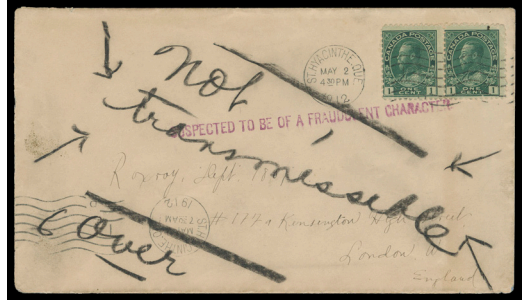 ST. HYACINTHE. QUE
MAY 2
4:30 PM
1912
CANADA POSTAGE
1 ONE CENT 1
CANADA POSTAGE
1 ONE CENT 1
Not
transmissible
SUSPECTED TO BE OF A FRAUDULENT CHARACTER
Roxroy, Dept
# 114a Kensington High Street
London W
England
over
ST. HYACINTHE
MAY
7:30 AM
1912